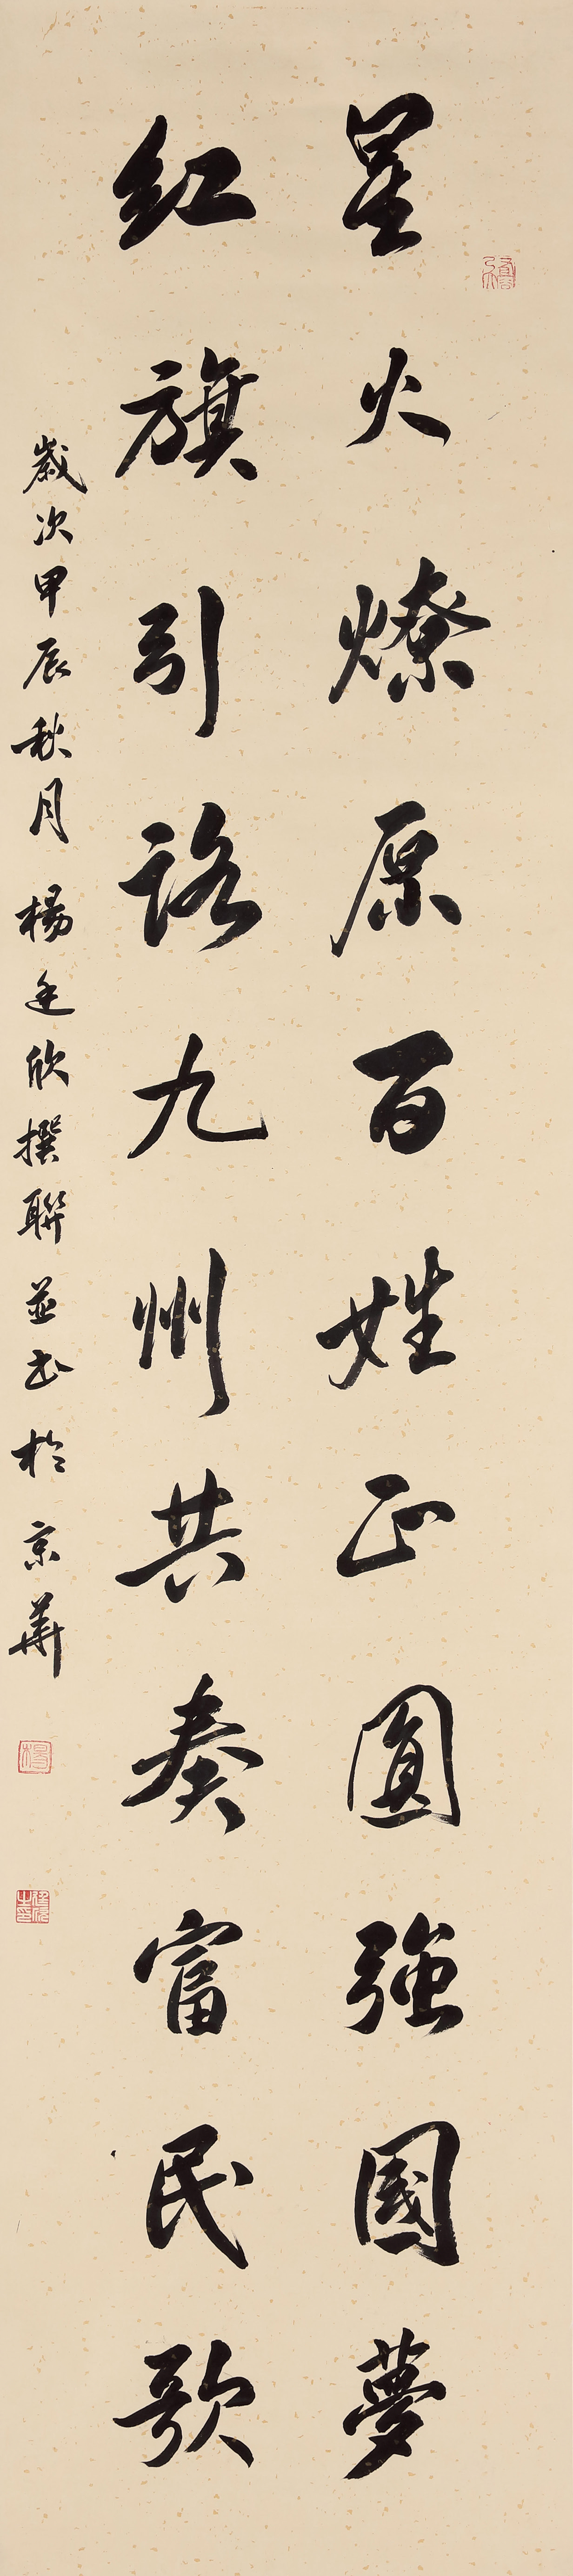 星火燎原百姓正圓強國夢
紅旗引路九州共奏富民歌
歲次甲辰秋月楊廷欣撰聯並书於京華
楊